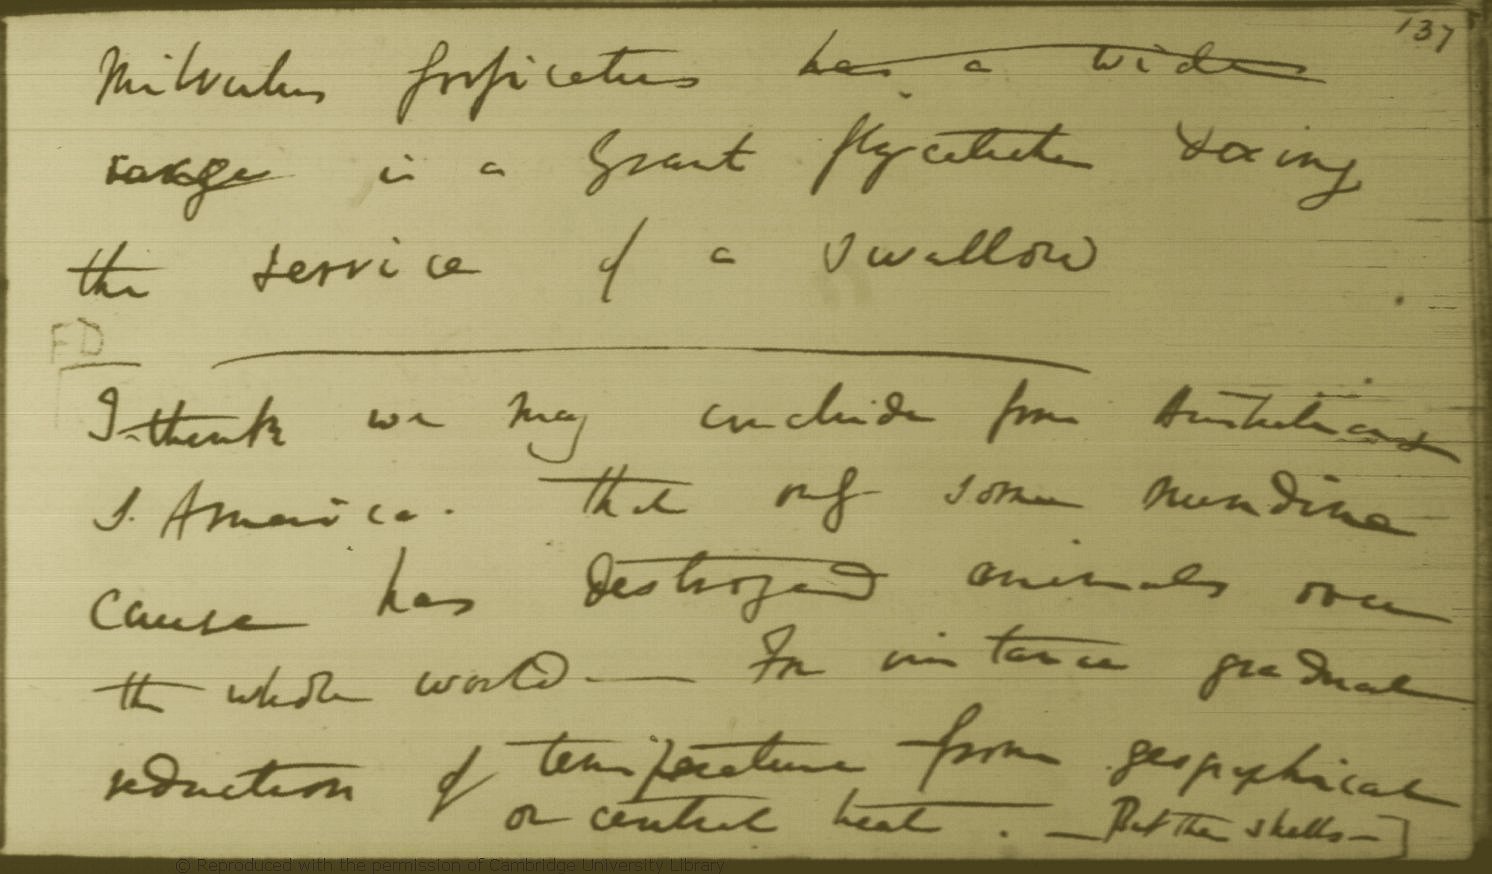 137
Milvulus forficatus has a wider
range is a tyrant flycatcher doing
the service of a swallow
FD
I think we may conclude from Australia and
S. America. that only some mundine
cause has destroyed animals over
the whole world — For instance gradual
reduction of temperature from geographical
or central heat. — But then shells —]
© Reproduced with the permission of Cambridge University Library